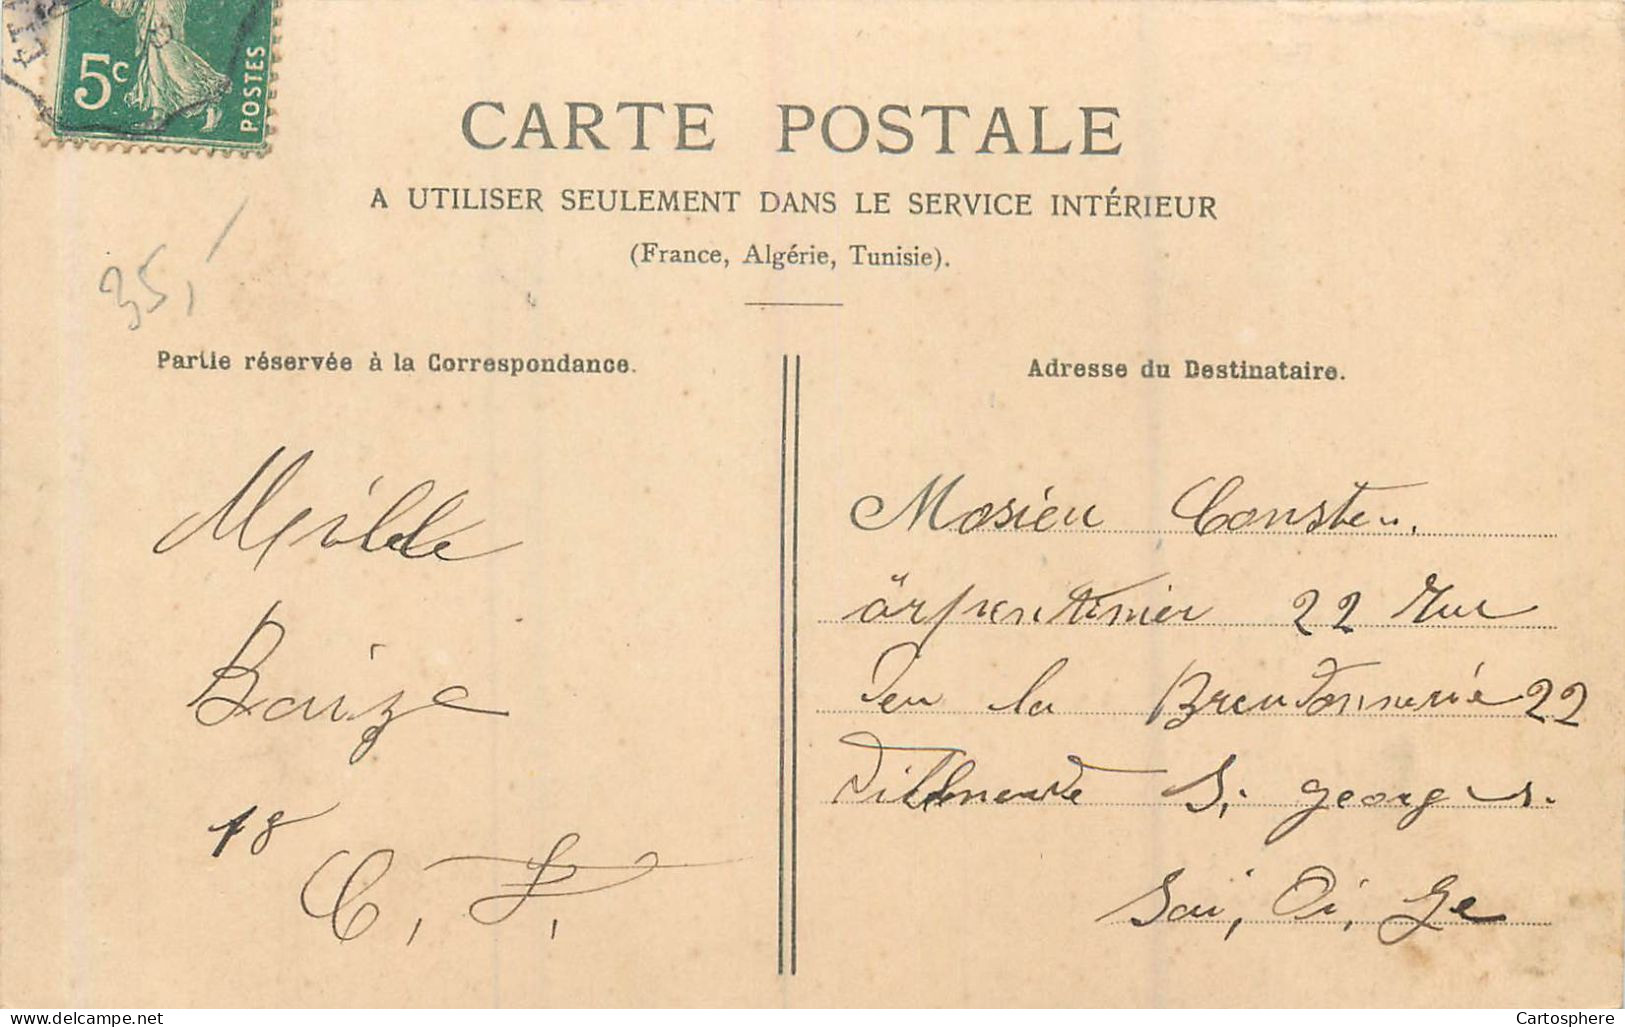 5c
POSTES
CARTE POSTALE
A UTILISER SEULEMENT DANS LE SERVICE INTÉRIEUR
(France, Algérie, Tunisie).
35,
Partie réservée à la Correspondance.
Mille
Baize
18
C. F.
Adresse du Destinataire.
Mosieu
22 Rue
la 22
S. georges.
Sei, Oi, Ge
www.delcampe.net
Cartosphere